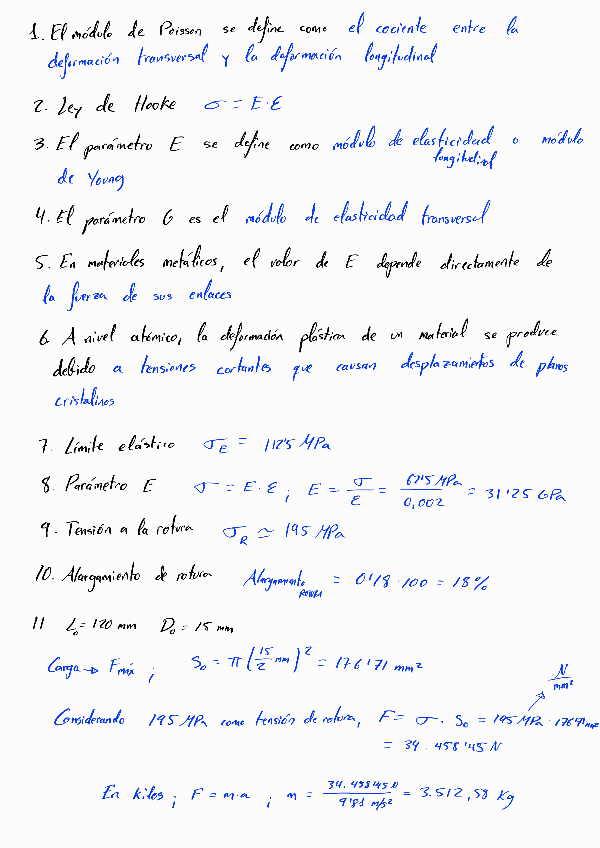 1. El módulo de Poisson se define como el cociente entre la
deformación transversal y la deformación longitudinal
2. Ley de Hooke σ = E·ε
3. El parámetro E se define como módulo de elasticidad o módulo
longitudinal
de Young
4. El parámetro G es el módulo de elasticidad transversal
5. En materiales metálicos, el valor de E depende directamente de
la fuerza de sus enlaces
6. A nivel atómico, la deformación plástica de un material se produce
debido a tensiones cortantes que causan desplazamientos de planos
cristalinos
7. Límite elástico σE = 112'5 MPa
8. Parámetro E σ = E·ε ; E = σ/ε = 62'5 MPa/0,002 = 31'25 GPa
9. Tensión a la rotura σR ≃ 195 MPa
10. Alargamiento de rotura Alargamiento ROTURA = 0'18·100 = 18%
11 L₀ = 120 mm D₀ = 15 mm
Carga → Fmáx ; S₀ = π(15/2 mm)² = 176'71 mm²
N/mm²
Considerando 195 MPa como tensión de rotura, F = σ·S₀ = 195 MPa · 176'71 mm²
= 34.458'45 N
En kilos ; F = m·a ; m = 34.458'45 N/9'81 m/s² = 3.512,58 Kg